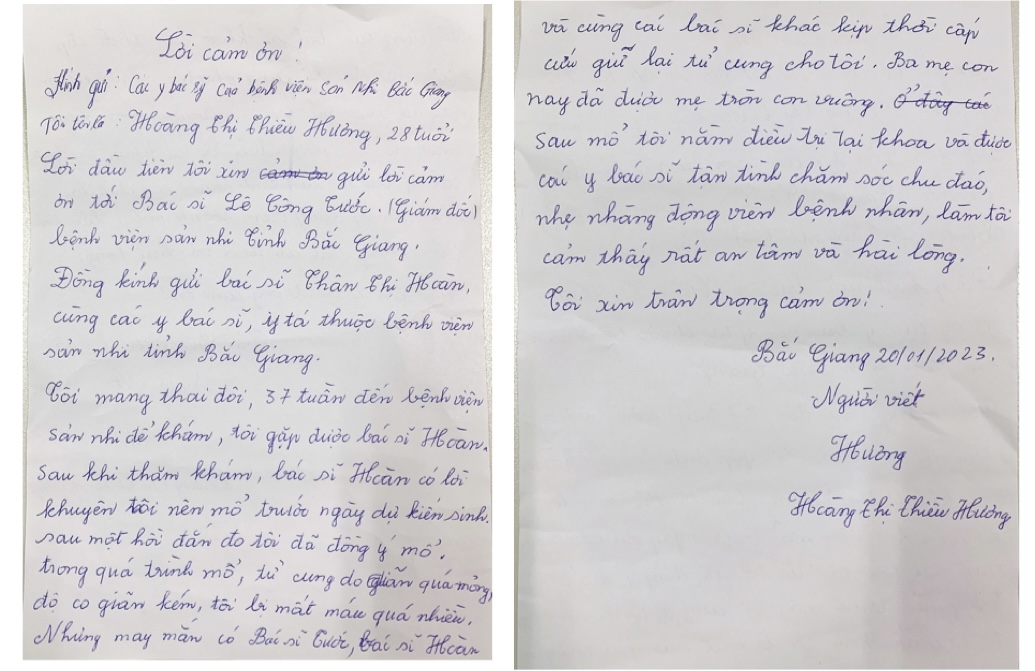 Lời cảm ơn!
Kính gửi: Các y bác sỹ của bệnh viện Sản Nhi Bắc Giang
Tôi tên là: Hoàng Thị Thiều Hương, 28 tuổi
Lời đầu tiên tôi xin cảm ơn gửi lời cảm
ơn tới Bác sĩ Lê Công Tước. (Giám đốc)
bệnh viện sản nhi Tỉnh Bắc Giang.
Đồng kính gửi bác sĩ Thân Thị Hoàn,
cùng các y bác sĩ, y tá thuộc bệnh viện
sản nhi tỉnh Bắc Giang.
Tôi mang thai đôi, 37 tuần đến bệnh viện
sản nhi để khám, tôi gặp được bác sĩ Hoàn.
sau khi thăm khám, bác sĩ Hoàn có lời
khuyên tôi nên mổ trước ngày dự kiến sinh.
sau một hồi đắn đo tôi đã đồng ý mổ.
trong quá trình mổ, tử cung do giãn quá mỏng,
độ co giãn kém, tôi bị mất máu quá nhiều.
Nhưng may mắn có Bác sĩ Tước, bác sĩ Hoàn
và cùng các bác sĩ khác kịp thời cấp
cứu giữ lại tử cung cho tôi. Ba mẹ con
nay đã được mẹ tròn con vuông. Ở đây các
sau mổ tôi nằm điều trị tại khoa và được
các y bác sĩ tận tình chăm sóc chu đáo,
nhẹ nhàng động viên bệnh nhân, làm tôi
cảm thấy rất an tâm và hài lòng.
Tôi xin trân trọng cảm ơn!
Bắc Giang 20/01/2023.
Người viết
Hương
Hoàng Thị Thiều Hương